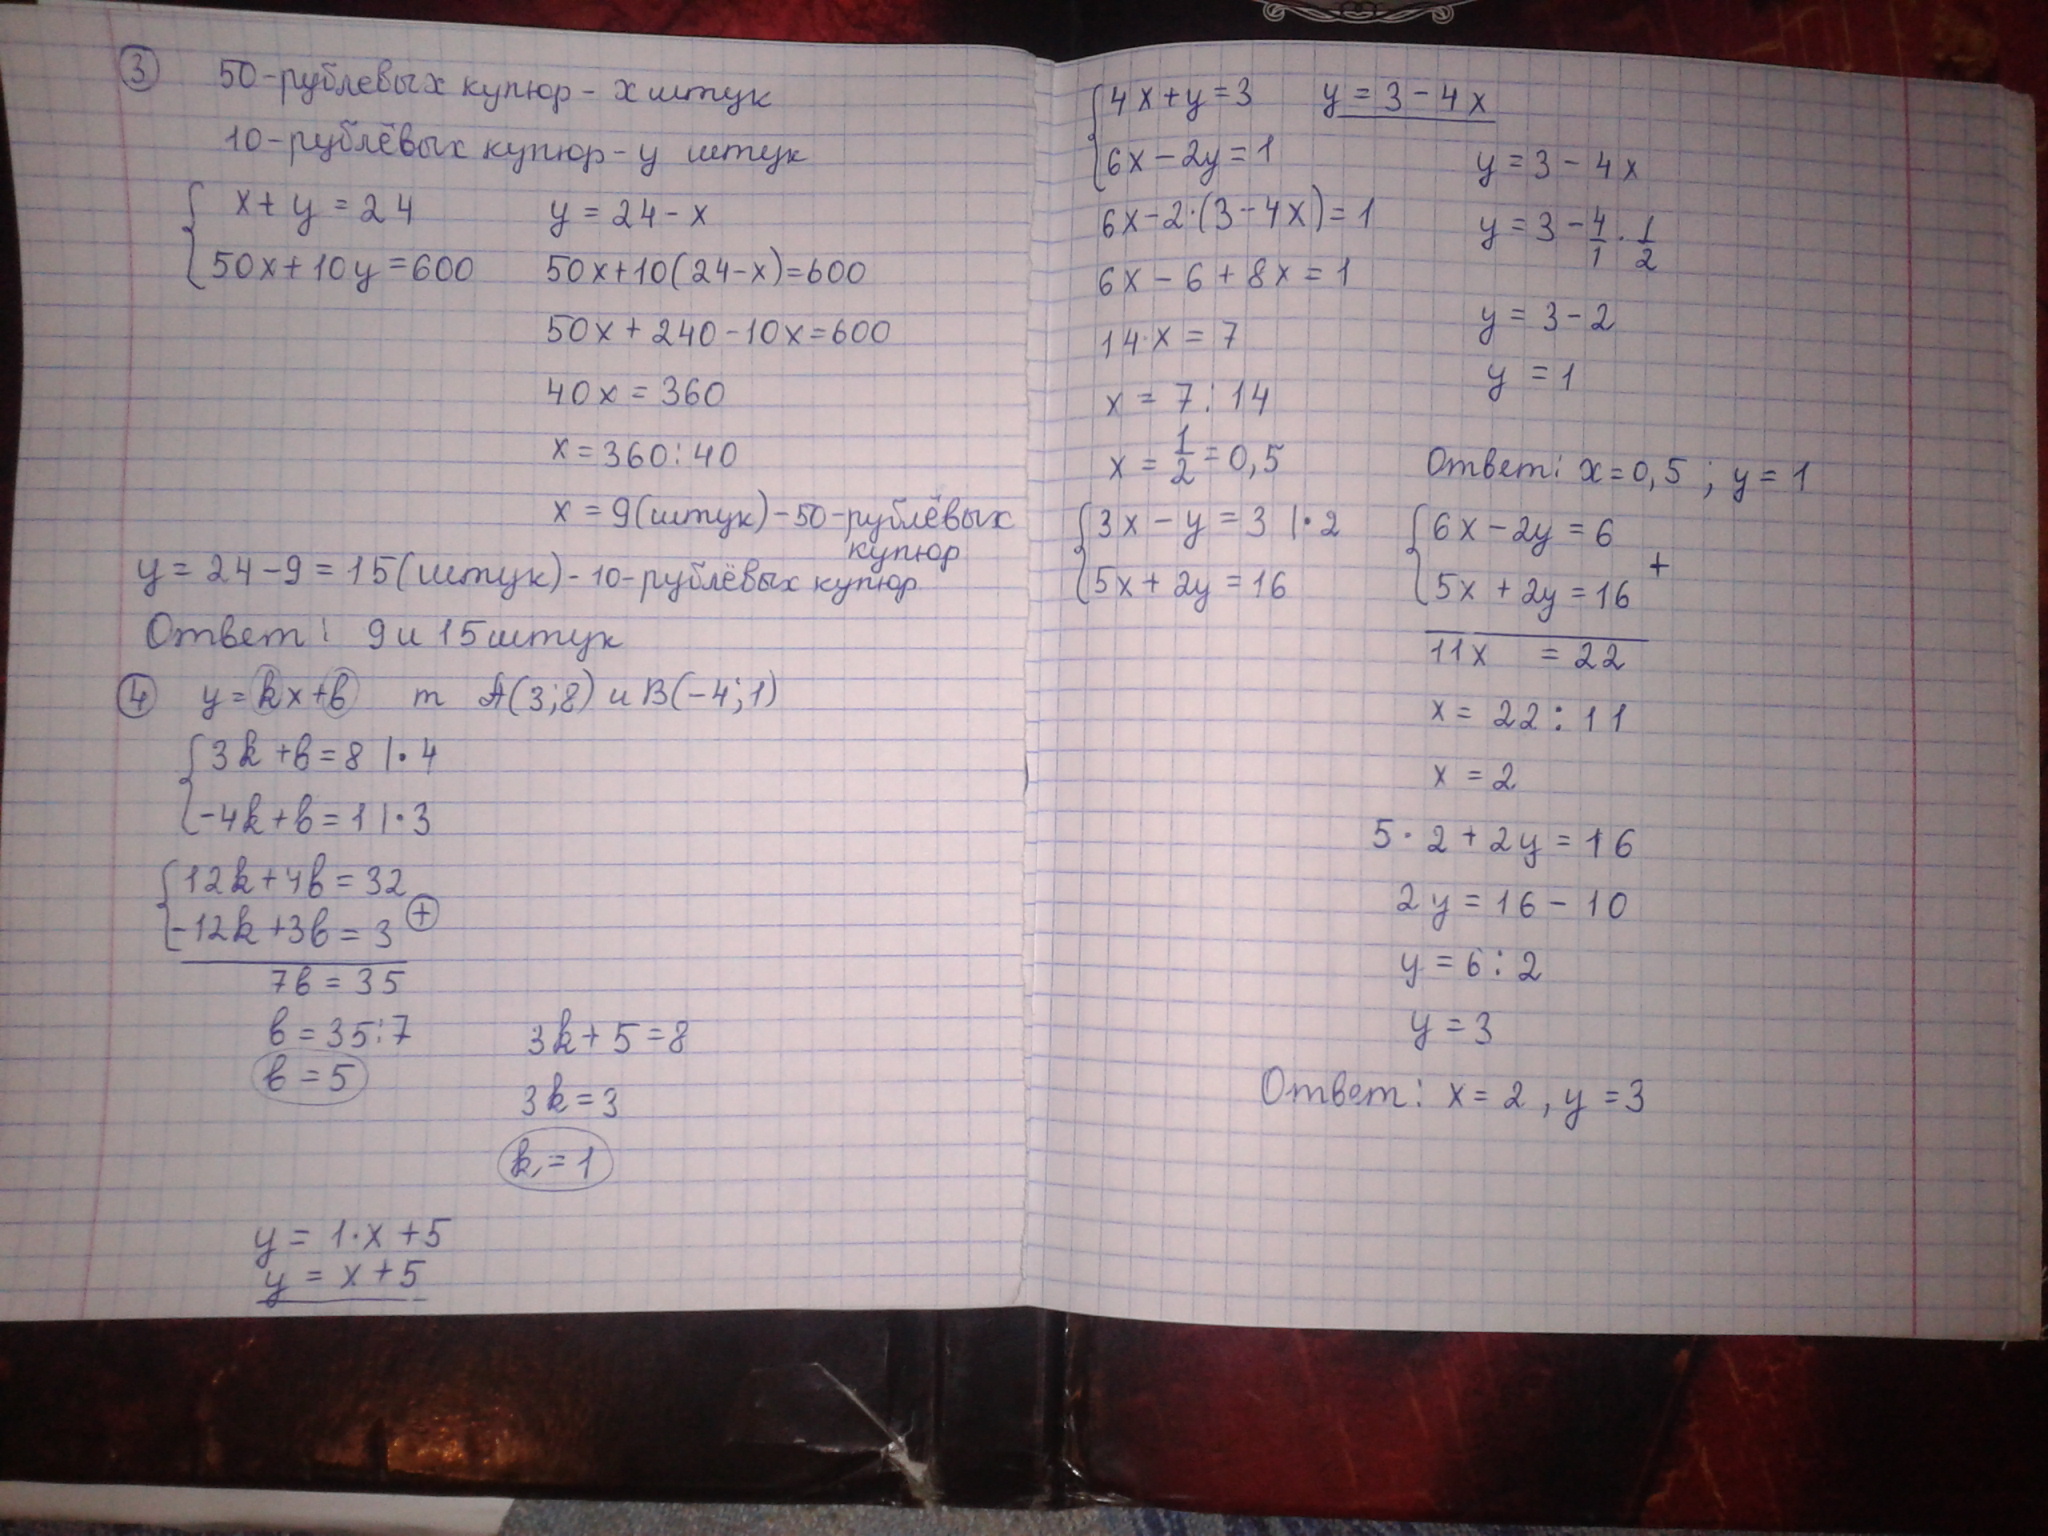 3 50-рублевых купюр - x штук
10-рублёвых купюр - y штук
x + y = 24 y = 24 - x
50x + 10y = 600 50x + 10(24 - x) = 600
50x + 240 - 10x = 600
40x = 360
x = 360 : 40
x = 9 (штук) - 50-рублёвых
купюр
y = 24 - 9 = 15 (штук) - 10-рублёвых купюр
Ответ: 9 и 15 штук
4 y = kx + b т A(3;8) и B(-4;1)
3k + b = 8 | · 4
-4k + b = 1 | · 3
12k + 4b = 32
-12k + 3b = 3 +
7b = 35
b = 35 : 7
b = 5
3k + 5 = 8
3k = 3
k = 1
y = 1 · x + 5
y = x + 5
4x + y = 3 y = 3 - 4x
6x - 2y = 1
6x - 2 · (3 - 4x) = 1
6x - 6 + 8x = 1
14 · x = 7
x = 7 : 14
x = 1/2 = 0,5
y = 3 - 4x
y = 3 - 4/1 · 1/2
y = 3 - 2
y = 1
Ответ: x = 0,5 ; y = 1
3x - y = 3 | · 2 6x - 2y = 6
5x + 2y = 16 5x + 2y = 16 +
11x = 22
x = 22 : 11
x = 2
5 · 2 + 2y = 16
2y = 16 - 10
y = 6 : 2
y = 3
Ответ: x = 2 , y = 3